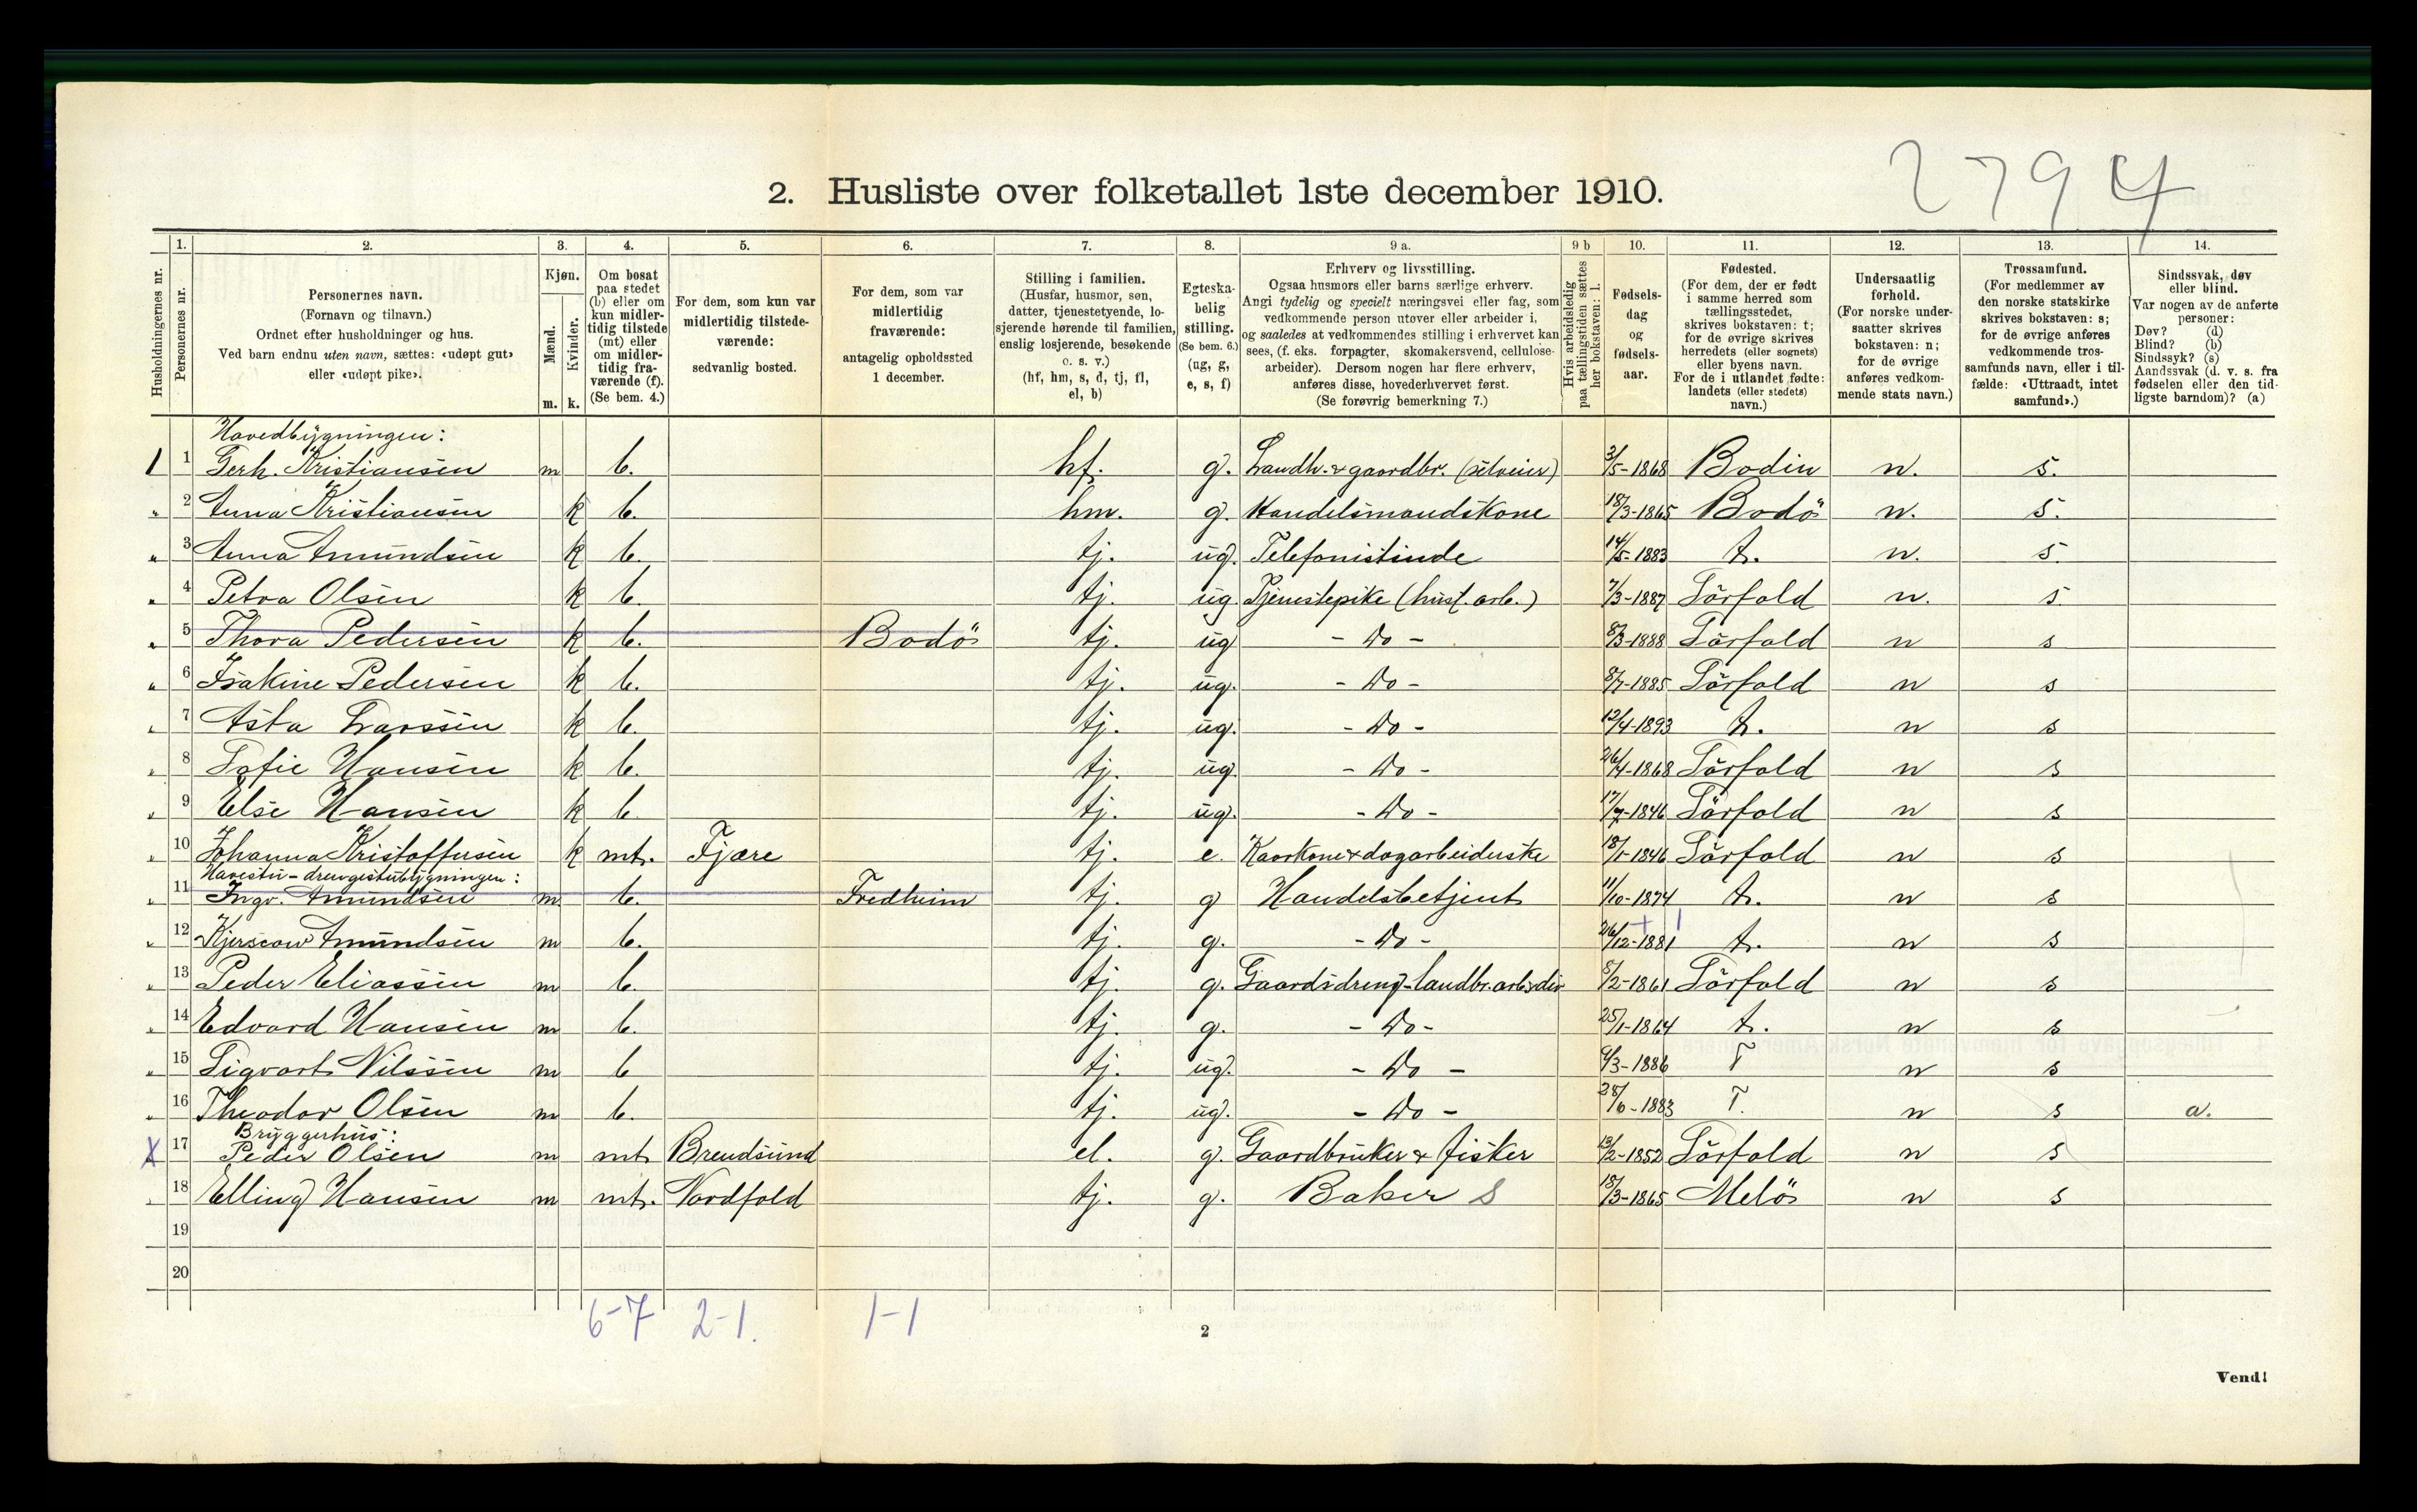 2794
2. Husliste over folketallet 1ste december 1910.
Husholdningernes nr.
1. Personernes nr.
2. Personernes navn. (Fornavn og tilnavn.) Ordnet efter husholdninger og hus. Ved barn endnu uten navn, sættes: «udøpt gut» eller «udøpt pike».
3. Kjøn. Mænd. m. Kvinder. k.
4. Om bosat paa stedet (b) eller om kun midlertidig tilstede (mt) eller om midlertidig fraværende (f). (Se bem. 4.)
5. For dem, som kun var midlertidig tilstedeværende: sedvanlig bosted.
6. For dem, som var midlertidig fraværende: antagelig opholdssted 1 december.
7. Stilling i familien. (Husfar, husmor, søn, datter, tjenestetyende, losjerende hørende til familien, enslig losjerende, besøkende o. s. v.) (hf, hm, s, d, tj, fl, el, b)
8. Egteskabelig stilling. (Se bem. 6.) (ug, g, e, s, f)
9 a. Erhverv og livsstilling. Ogsaa husmors eller barns særlige erhverv. Angi tydelig og specielt næringsvei eller fag, som vedkommende person utøver eller arbeider i, og saaledes at vedkommendes stilling i erhvervet kan sees, (f. eks. forpagter, skomakersvend, cellulosearbeider). Dersom nogen har flere erhverv, anføres disse, hovederhvervet først. (Se forøvrig bemerkning 7.)
9 b Hvis arbeidsledig paa tællingstiden sættes her bokstaven: l.
10. Fødselsdag og fødselsaar.
11. Fødested. (For dem, der er født i samme herred som tællingsstedet, skrives bokstaven: t; for de øvrige skrives herredets (eller sognets) eller byens navn. For de i utlandet fødte: landets (eller stedets) navn.)
12. Undersaatlig forhold. (For norske undersaatter skrives bokstaven: n; for de øvrige anføres vedkommende stats navn.)
13. Trossamfund. (For medlemmer av den norske statskirke skrives bokstaven: s; for de øvrige anføres vedkommende trossamfunds navn, eller i tilfælde: «Uttraadt, intet samfund».)
14. Sindssvak, døv eller blind. Var nogen av de anførte personer: Døv? (d) Blind? (b) Sindssyk? (s) Aandssvak (d. v. s. fra fødselen eller den tidligste barndom)? (a)
Hovedbygningen:
1 1 Gerh. Kristiansen m b. hf. g. Landh. & gaardbr. 3/5-1868 Bodin n. s.
" 2 Anna Kristiansen k b. hm. g. Handelsmandskone 18/3-1865 Bodö n. s.
" 3 Anna Amundsen k b. tj. ug. Telefonistinde 14/5-1883 t. n. s
" 4 Petra Olsen k b. tj. ug. Tjenestepike (husl. arb.) 7/3-1887 Sörfold n. s
" 5 Thora Pedersen k b. Bodö tj. ug - Do - 8/3-1888 Sörfold n s
" 6 Isakine Pedersen k b. tj. ug. - Do - 8/7-1885 Sörfold n s
" 7 Asta Larssen k b. tj. ug. - Do - 12/4-1893 t. n s
" 8 Sofie Hansen k b. tj. ug. - Do - 26/4-1868 Sörfold n s
" 9 Else Hansen k b tj. ug. - Do - 17/7-1846 Sörfold n s
" 10 Johanna Kristoffersen k mt. Fjære tj. e. Kaarkone & dagarbeiderske 18/1-1846 Sörfold n s
Havestu-drengestubygningen:
" 11 Ingv. Amundsen m b. Fredheim tj. g Handelsbetjent 11/10-1874 t. n s
" 12 Kjerscow Amundsen m b. tj. g. - Do - 26/12-1881 t. n s
" 13 Peder Eliassen m b. tj. g. Gaardsdreng-landbr.arbeider 8/2-1861 Sörfold n s
" 14 Edvard Hansen m b. tj. g. - Do - 25/1-1864 t. n s
" 15 Sigvart Nilssen m b tj. ug. - Do - 9/3-1886 T n s
" 16 Theodor Olsen m b. tj. ug. - Do - 28/6-1883 T. n s a.
Bryggerhus:
X 17 Peder Olsen m mt Brendsund el. g. Gaardbruker & fisker 13/2-1852 Sörfold n s
" 18 Elling Hansen m mt. Nordfold tj. g. Baker S 18/3-1865 Melö n s
19
20
6-7 2-1. 1-1
2
Vend!